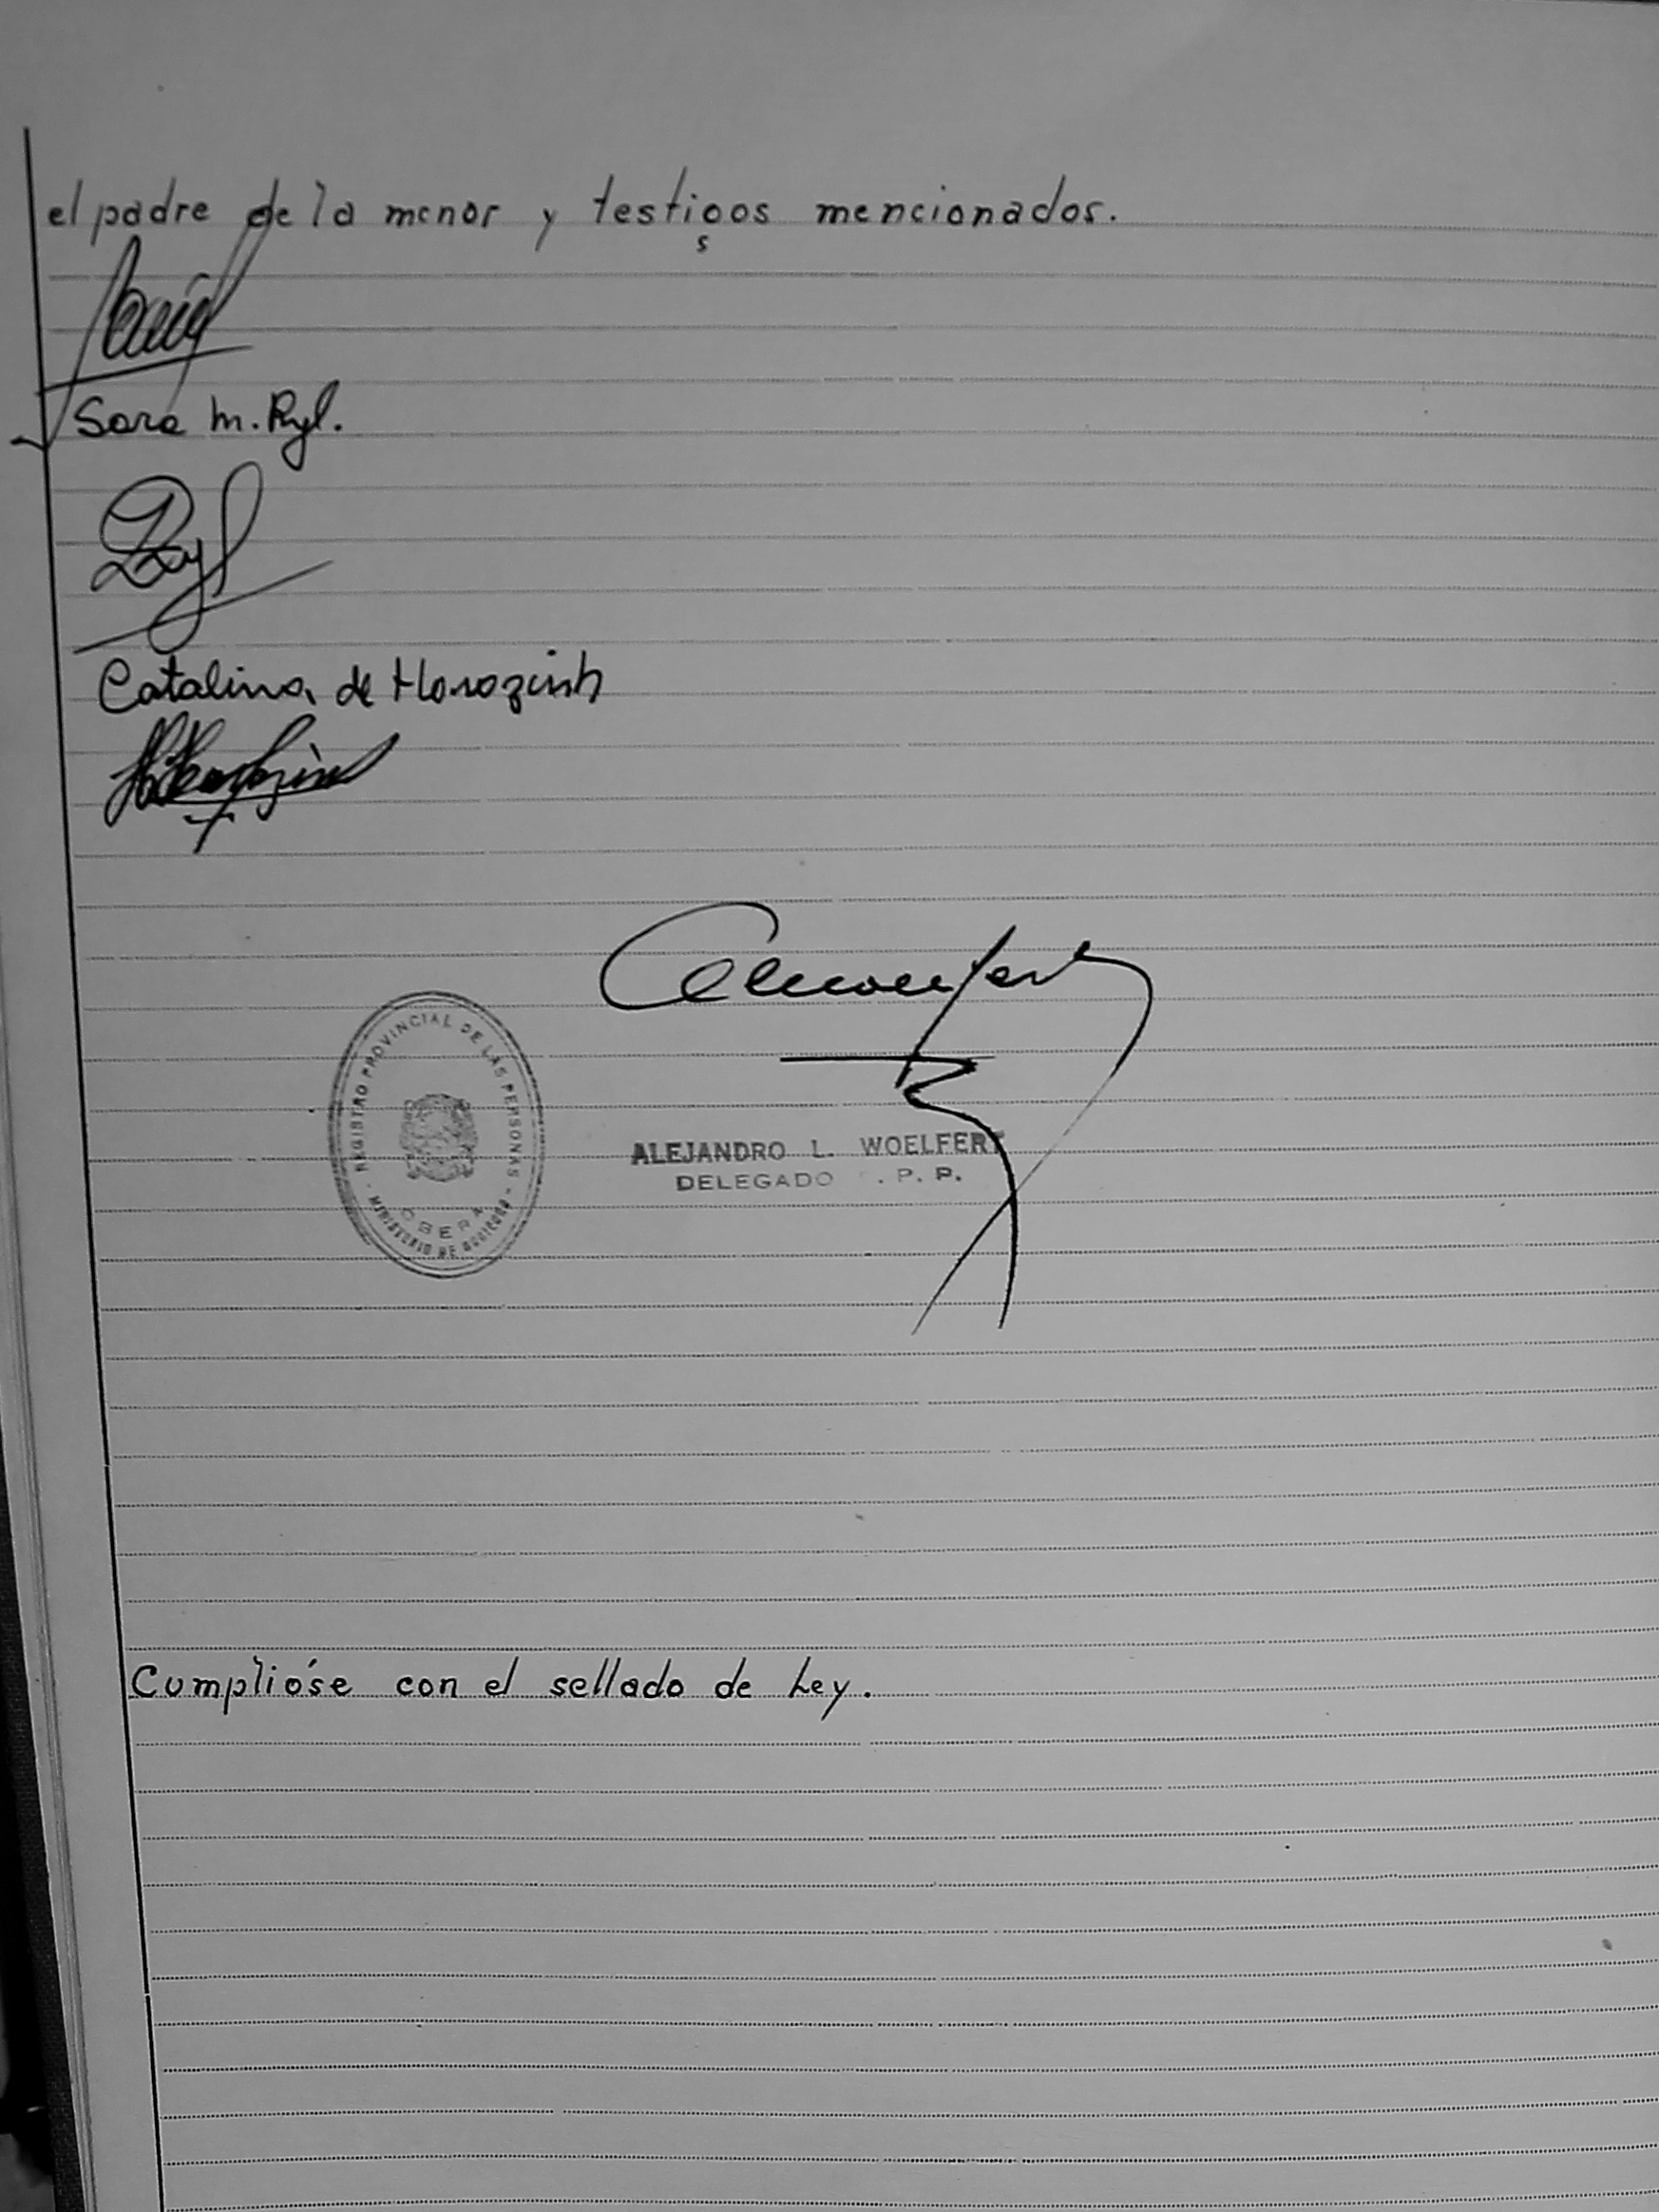 el padre de la menor y testigos mencionados.
Sara M. Ryl.
Ryl
Catalina de
REGISTRO PROVINCIAL DE LAS PERSONAS
OBERA
MINISTERIO DE
ALEJANDRO L. WOELFERT
DELEGADO . P. P.
Cumplióse con el sellado de Ley.